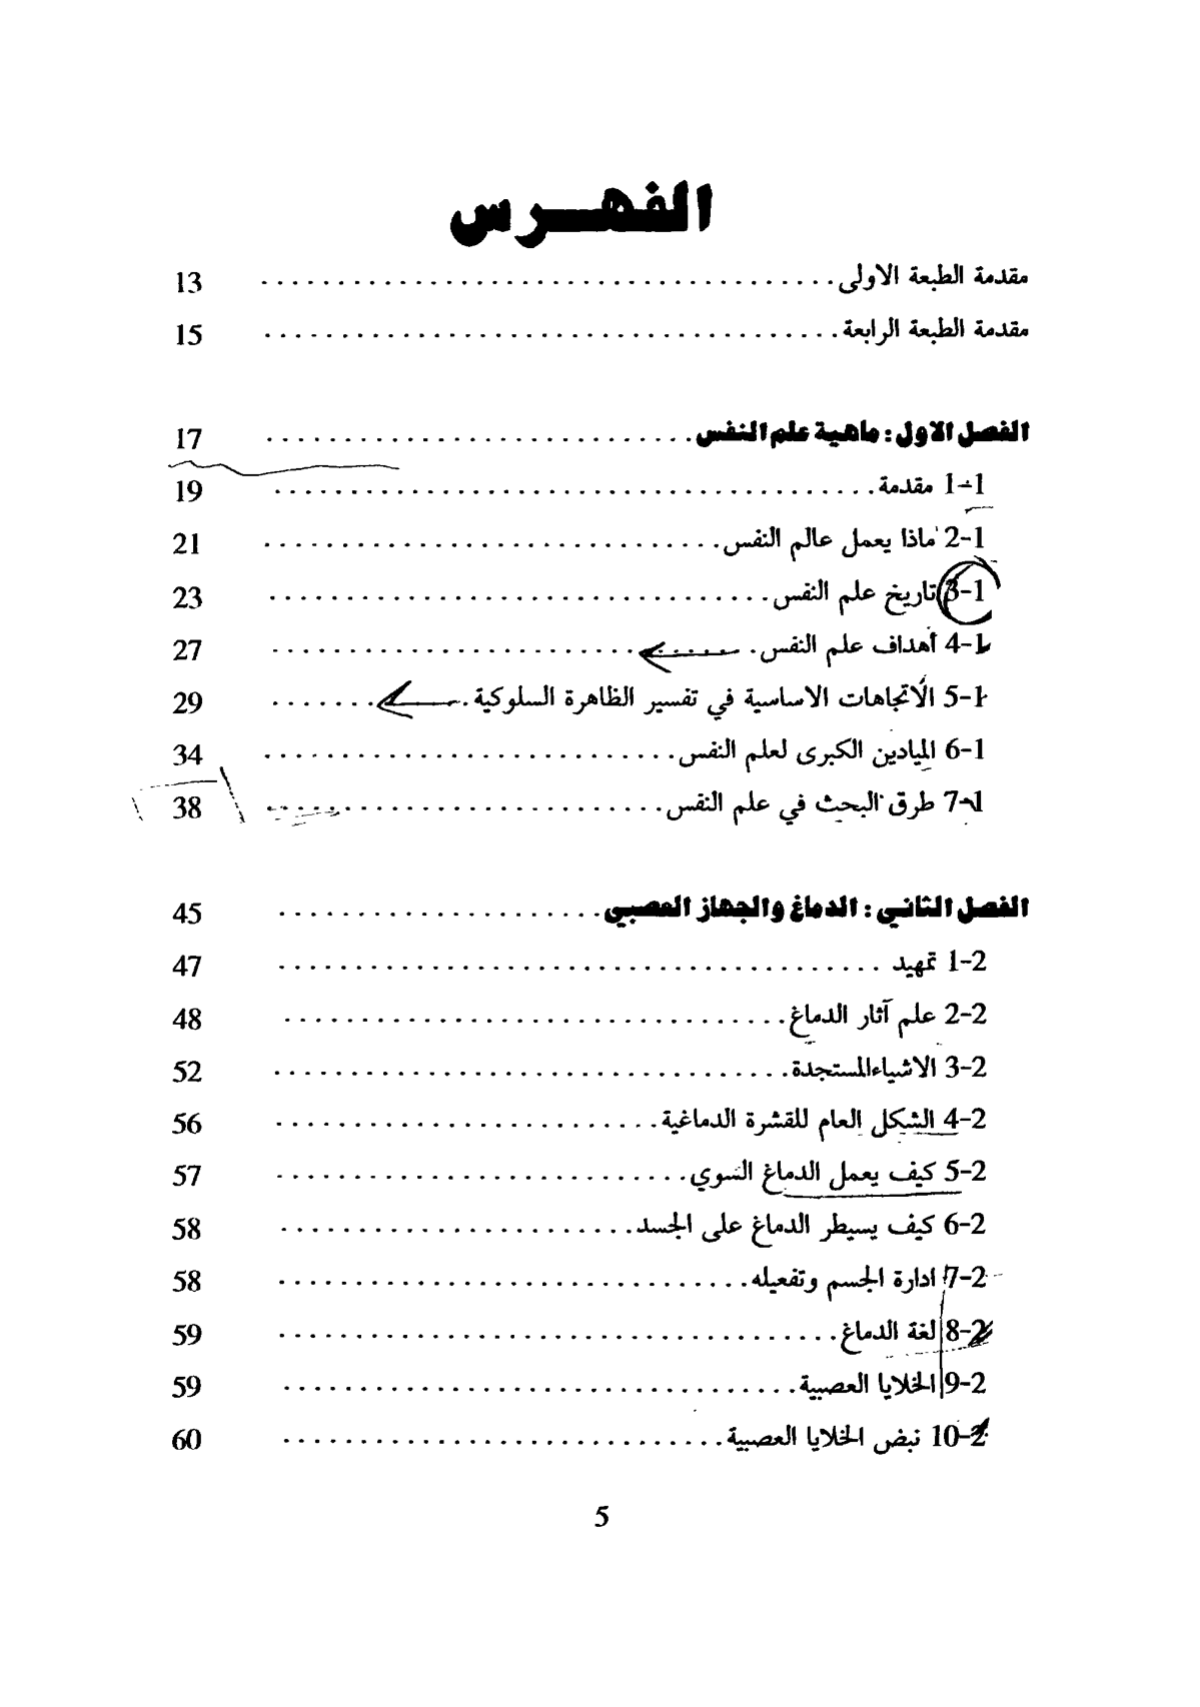 الفهـــرس
مقدمة الطبعة الاولى . . . . . . . . . . . . . . . . . . . . 13
مقدمة الطبعة الرابعة . . . . . . . . . . . . . . . . . . . . 15
الفصل الاول : ماهية علم النفس . . . . . . . . . . . . . . . . . . . . 17
1-1 مقدمة . . . . . . . . . . . . . . . . . . . . 19
2-1 ماذا يعمل عالم النفس . . . . . . . . . . . . . . . . . . . . 21
3-1 تاريخ علم النفس . . . . . . . . . . . . . . . . . . . . 23
4-1 أهداف علم النفس . . . . . . . . . . . . . . . . . . . . 27
5-1 الاتجاهات الاساسية في تفسير الظاهرة السلوكية . . . . . . . . . . 29
6-1 الميادين الكبرى لعلم النفس . . . . . . . . . . . . . . . . . . . . 34
7-1 طرق البحث في علم النفس . . . . . . . . . . . . . . . . . . . . 38
الفصل الثاني : الدماغ والجهاز العصبي . . . . . . . . . . . . . . . . . . . . 45
1-2 تمهيد . . . . . . . . . . . . . . . . . . . . 47
2-2 علم آثار الدماغ . . . . . . . . . . . . . . . . . . . . 48
3-2 الاشياءالمستجدة . . . . . . . . . . . . . . . . . . . . 52
4-2 الشكل العام للقشرة الدماغية . . . . . . . . . . . . . . . . . . . . 56
5-2 كيف يعمل الدماغ السوي . . . . . . . . . . . . . . . . . . . . 57
6-2 كيف يسيطر الدماغ على الجسد . . . . . . . . . . . . . . . . . . . . 58
7-2 ادارة الجسم وتفعيله . . . . . . . . . . . . . . . . . . . . 58
8-2 لغة الدماغ . . . . . . . . . . . . . . . . . . . . 59
9-2 الخلايا العصبية . . . . . . . . . . . . . . . . . . . . 59
10-2 نبض الخلايا العصبية . . . . . . . . . . . . . . . . . . . . 60
5